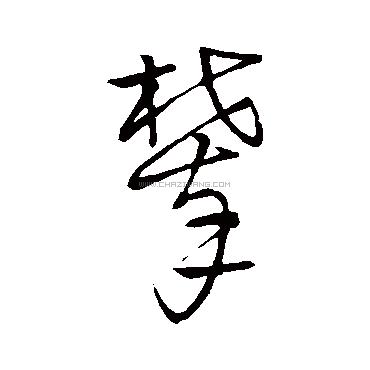 攀
WWW.CHAZIWANG.COM